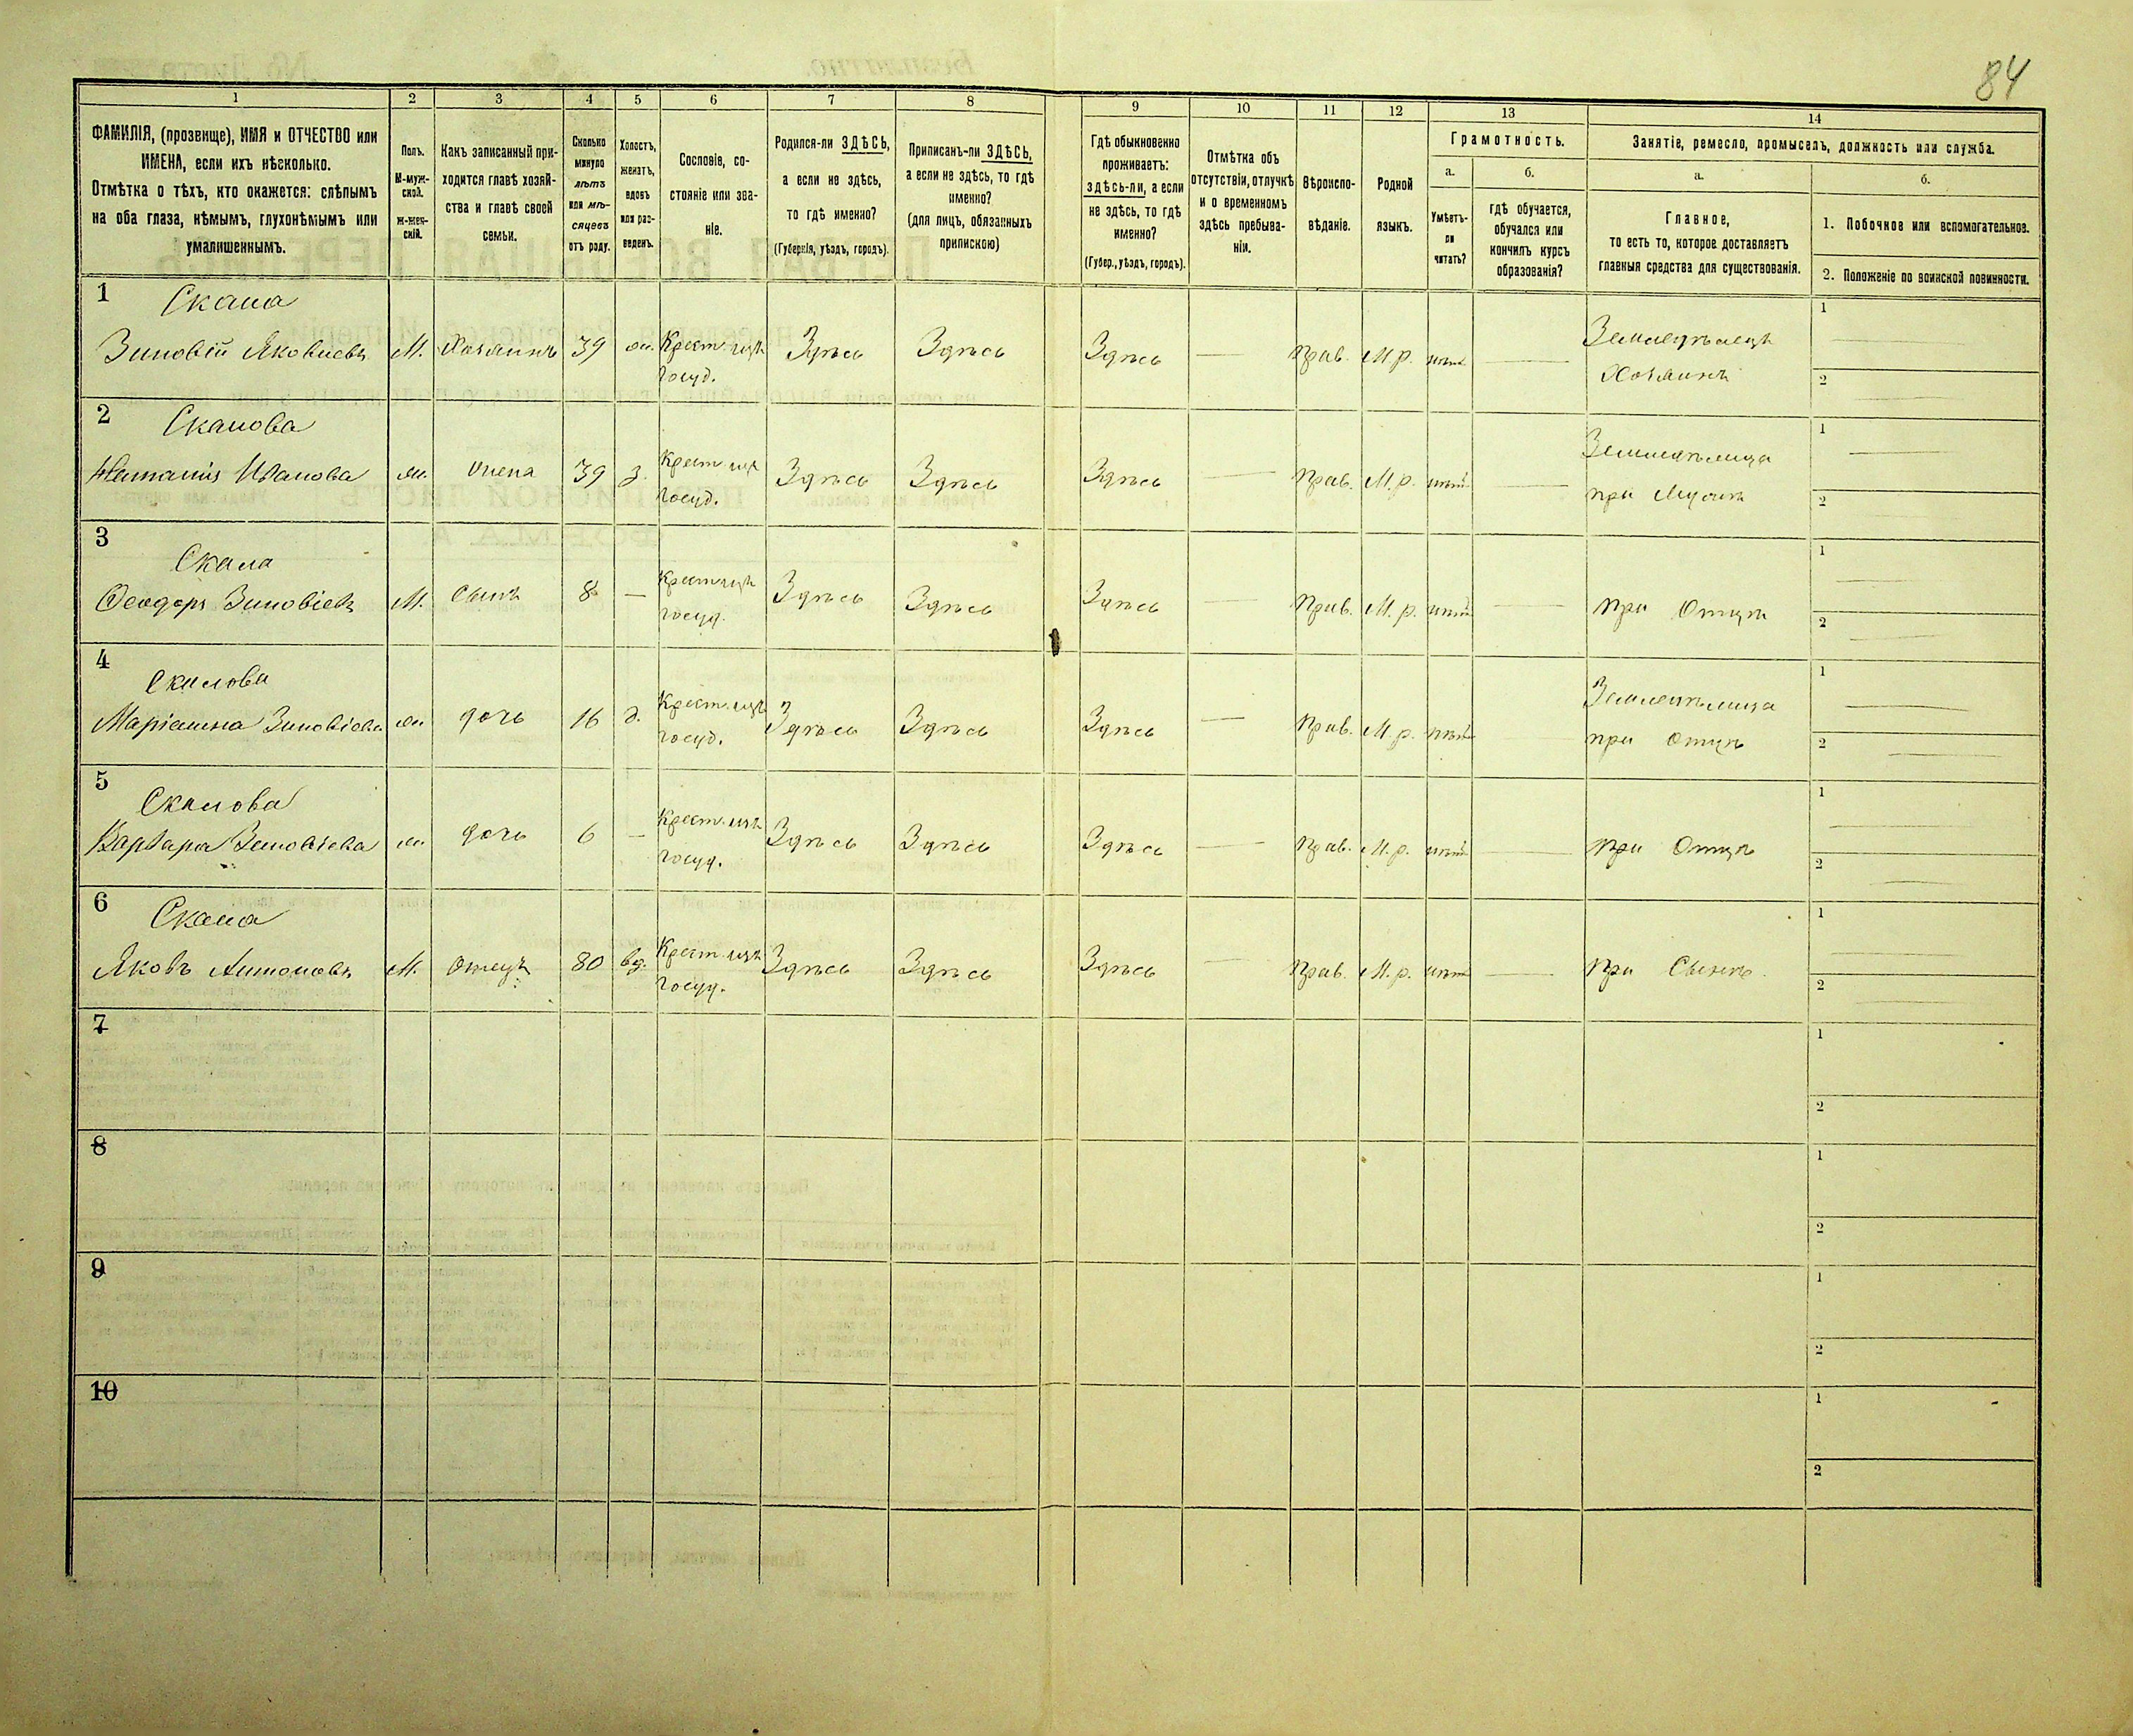 84
1 2 3 4 5 6 7 8 9 10 11 12 13 14
ФАМИЛІЯ, (прозвище), ИМЯ и ОТЧЕСТВО или
ИМЕНА, если ихъ нѣсколько.
Отмѣтка о тѣхъ, кто окажется: слѣпымъ
на оба глаза, нѣмымъ, глухонѣмымъ или
умалишеннымъ.
Полъ.
М-муж-
ской.
ж-жен-
скій.
Какъ записанный при-
ходится главѣ хозяй-
ства и главѣ своей
семьи.
Сколько
минуло
лѣтъ
или мѣ-
сяцевъ
отъ роду.
Холостъ,
женатъ,
вдовъ
или раз-
веденъ.
Сословіе, со-
стояніе или зва-
ніе.
Родился-ли ЗДѢСЬ,
а если не здѣсь,
то гдѣ именно?
(Губернія, уѣздъ, городъ).
Приписанъ-ли ЗДѢСЬ,
а если не здѣсь, то гдѣ
именно?
(для лицъ, обязанныхъ
припискою)
Гдѣ обыкновенно
проживаетъ:
здѣсь-ли, а если
не здѣсь, то гдѣ
именно?
(Губер., уѣздъ, городъ).
Отмѣтка объ
отсутствіи, отлучкѣ
и о временномъ
здѣсь пребыва-
ніи.
Вѣроиспо-
вѣданіе.
Родной
языкъ.
Грамотность.
а.
Умѣетъ-
ли
читать?
б.
гдѣ обучается,
обучался или
кончилъ курсъ
образованія?
Занятіе, ремесло, промыселъ, должность или служба.
а.
Главное,
то есть то, которое доставляетъ
главныя средства для существованія.
б.
1. Побочное или вспомогательное.
2. Положеніе по воинской повинности.
1 Скала
Зиновій Яковлевъ М. Хозяинъ 39 ж. Крест. изъ Здѣсь Здѣсь Здѣсь — Прав. М.р. нѣт — Земледѣлецъ 1
Госуд. Хозяинъ 2
2 Скалова
Наталія Иванова ж. Жена 39 з. Крест. изъ Здѣсь Здѣсь Здѣсь — Прав. М.р. нѣт — Земледѣлица 1
Госуд. при Мужѣ 2
3 Скала
Ѳеодоръ Зиновіевъ М. Сынъ 8 — Крест. изъ Здѣсь Здѣсь Здѣсь — Прав. М.р. нѣт — при Отцѣ 1
Госуд. 2
4 Скалова
Маріанна Зиновіева ж. дочь 16 д. Крест. изъ Здѣсь Здѣсь Здѣсь — Прав. М.р. нѣт Земледѣлица 1
Госуд. при Отцѣ 2
5 Скалова
Варвара Зиновіева ж. дочь 6 — Крест. изъ Здѣсь Здѣсь Здѣсь — Прав. М.р. нѣт — при Отцѣ 1
Госуд. 2
6 Скала
Яковъ Антоновъ М. Отецъ 80 вд. Крест. изъ Здѣсь Здѣсь Здѣсь — Прав. М.р. нѣт — При Сынѣ 1
Госуд. 2
7 1
2
8 1
2
9 1
2
10 1
2